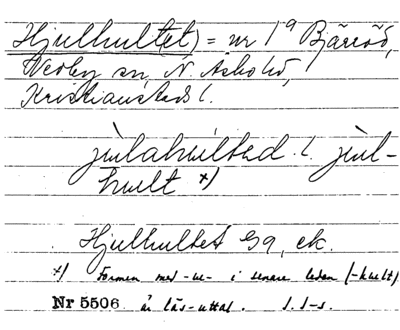 Hjulhult(et) = nr 1ª Bjäröd,
Wedby sn, N. Åsbo hd,
Kristianstads l.
julahultəd. l. jul-
hult x)
Hjulhultet Ga, ek.
x) Formen med -u- i senare leden (-hult)
Nr 5506 är läs-uttal. I. I-s.